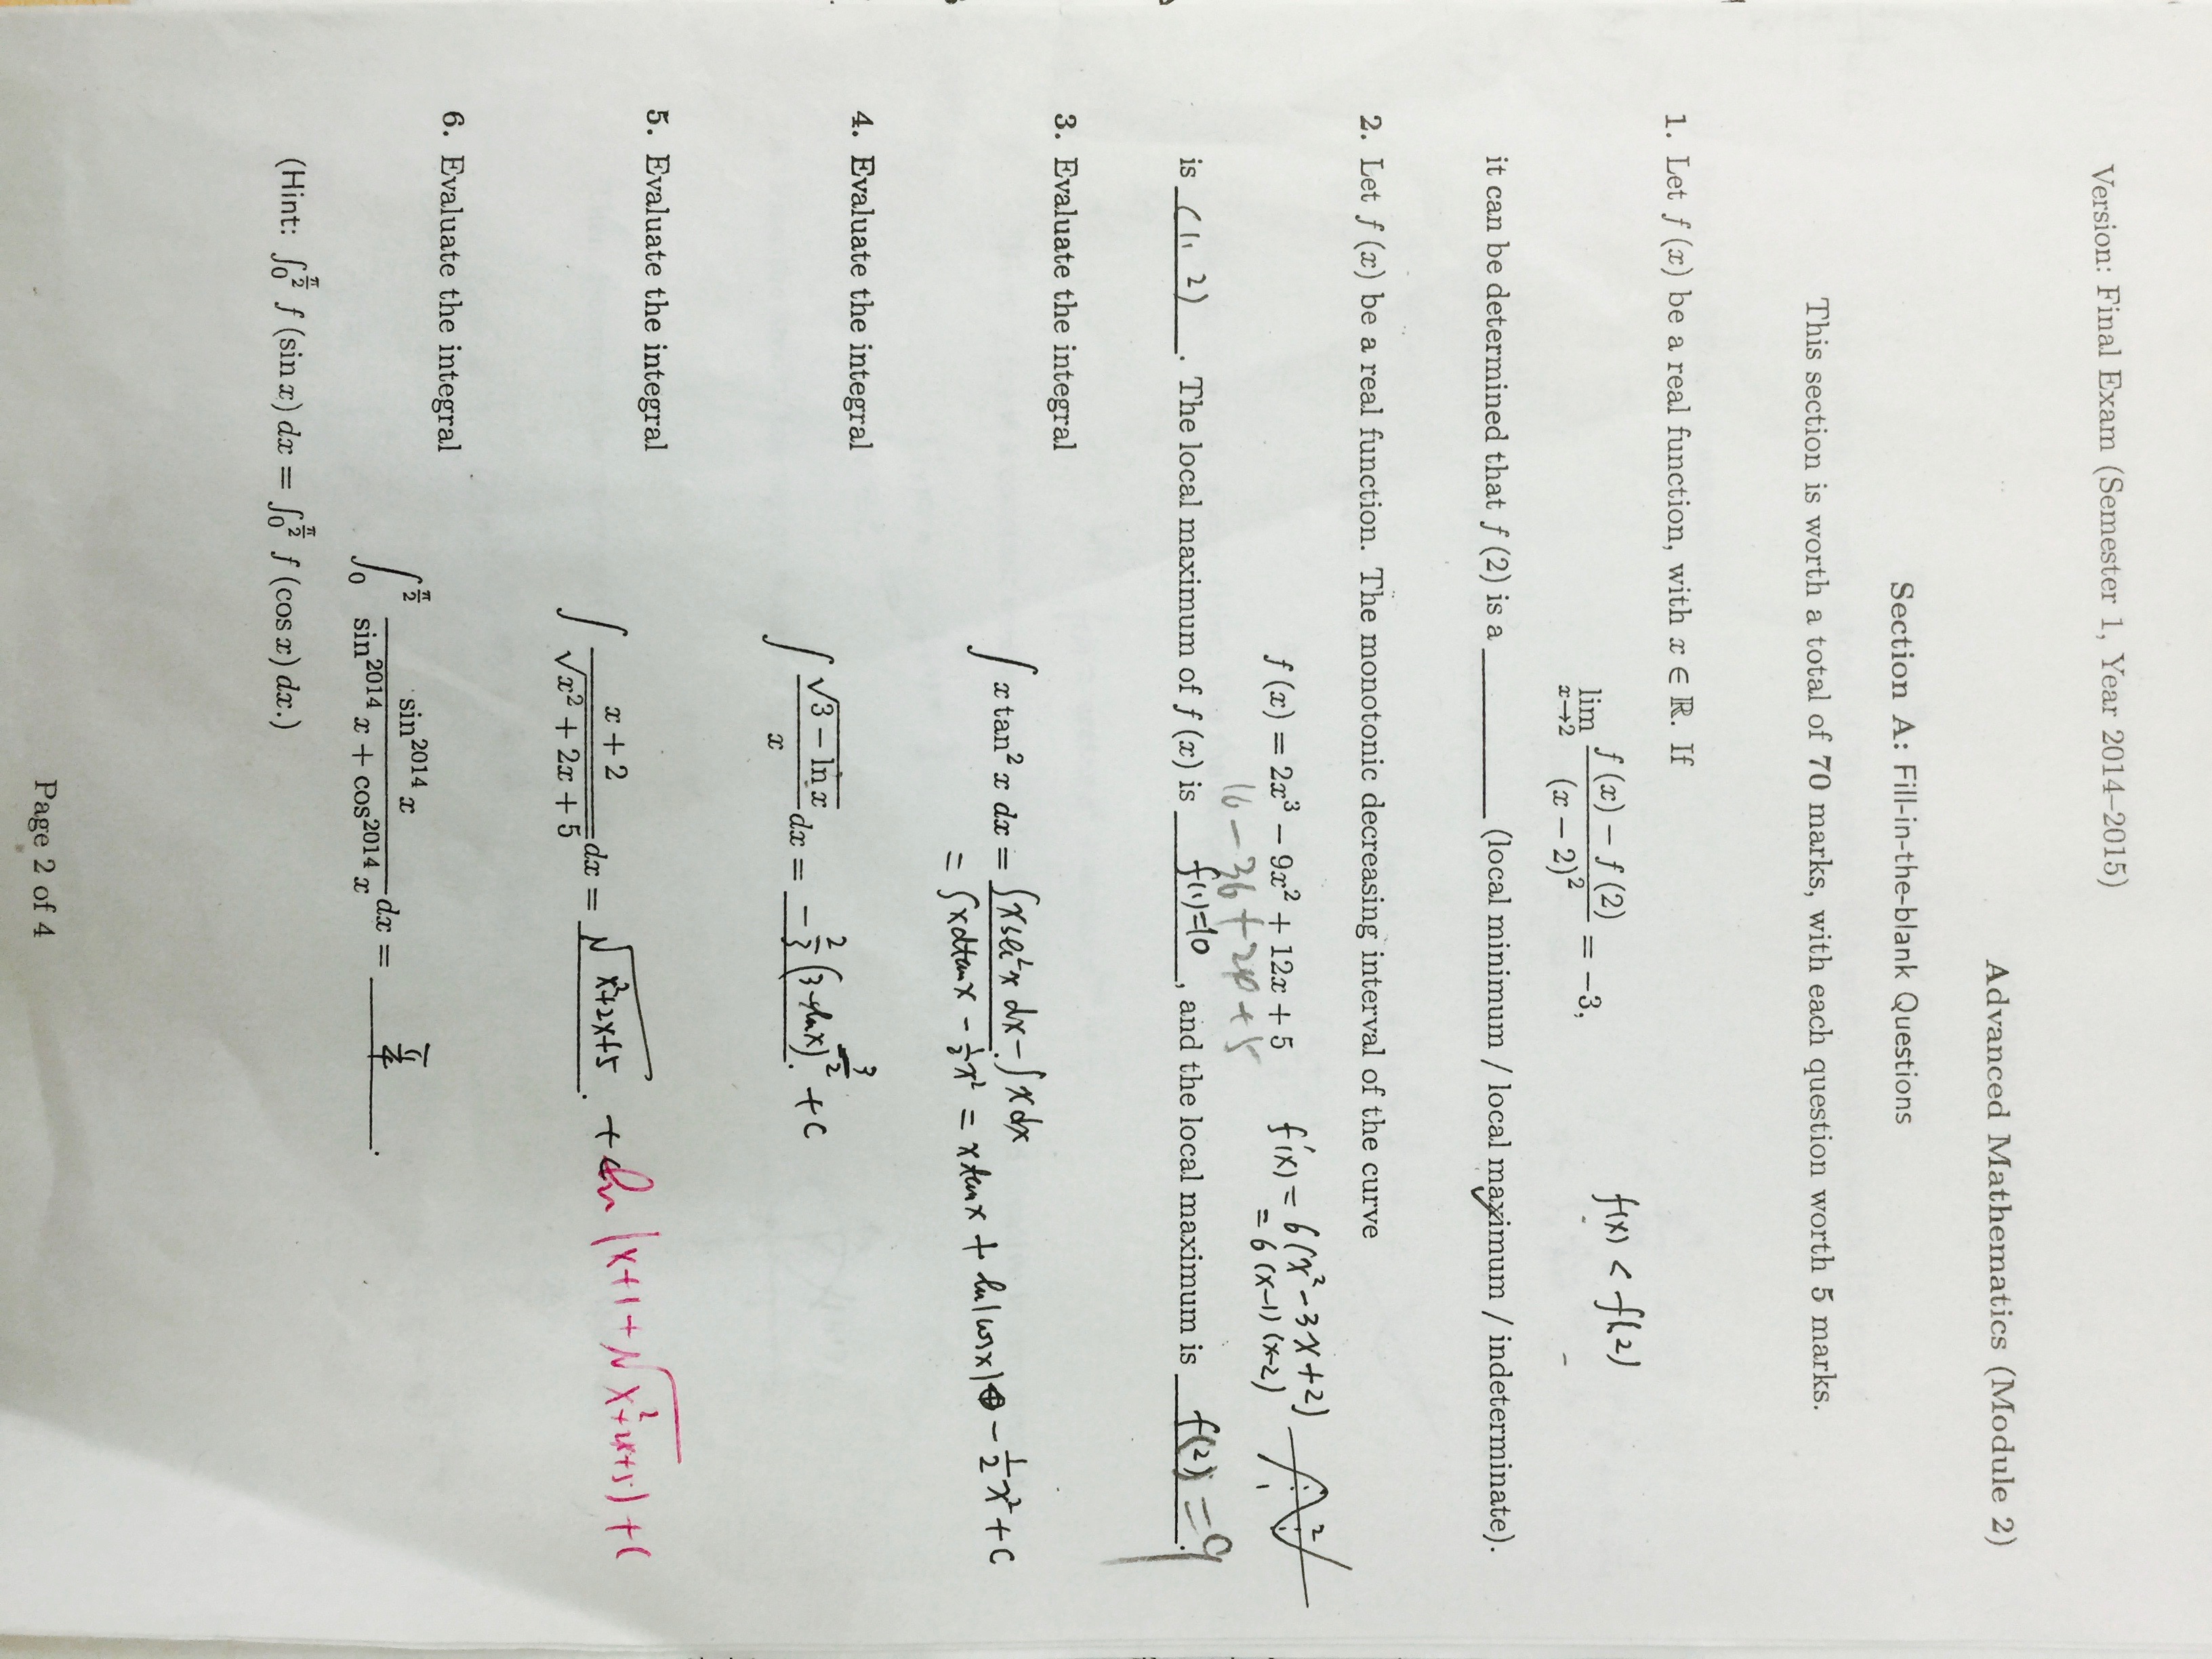 Version: Final Exam (Semester 1, Year 2014–2015)
Advanced Mathematics (Module 2)
Section A: Fill-in-the-blank Questions
This section is worth a total of 70 marks, with each question worth 5 marks.
1. Let f (x) be a real function, with x ∈ ℝ. If
lim x→2 (f (x) − f (2)) / (x − 2)² = −3,
f(x) < f(2)
it can be determined that f (2) is a ________ (local minimum / local maximum / indeterminate).
2. Let f (x) be a real function. The monotonic decreasing interval of the curve
f (x) = 2x³ − 9x² + 12x + 5
f'(x) = 6(x² − 3x + 2)
= 6(x−1)(x−2)
1 2
16 − 36 + 24 + 5
is (1, 2). The local maximum of f (x) is f(1)=10, and the local maximum is f(2) = 9.
3. Evaluate the integral
∫ x tan² x dx = ∫x sec²x dx − ∫x dx
= ∫x dtanx − ½x² = x tanx + ln|cosx| − ½x² + C
4. Evaluate the integral
∫ √(3 − ln x) / x dx = −⅔(3−lnx)^(3/2) + C
5. Evaluate the integral
∫ (x + 2) / √(x² + 2x + 5) dx = √(x²+2x+5) + ln|x+1+√(x²+2x+5)| + C
6. Evaluate the integral
∫₀^(π/2) sin²⁰¹⁴ x / (sin²⁰¹⁴ x + cos²⁰¹⁴ x) dx = π/4.
(Hint: ∫₀^(π/2) f (sin x) dx = ∫₀^(π/2) f (cos x) dx.)
Page 2 of 4